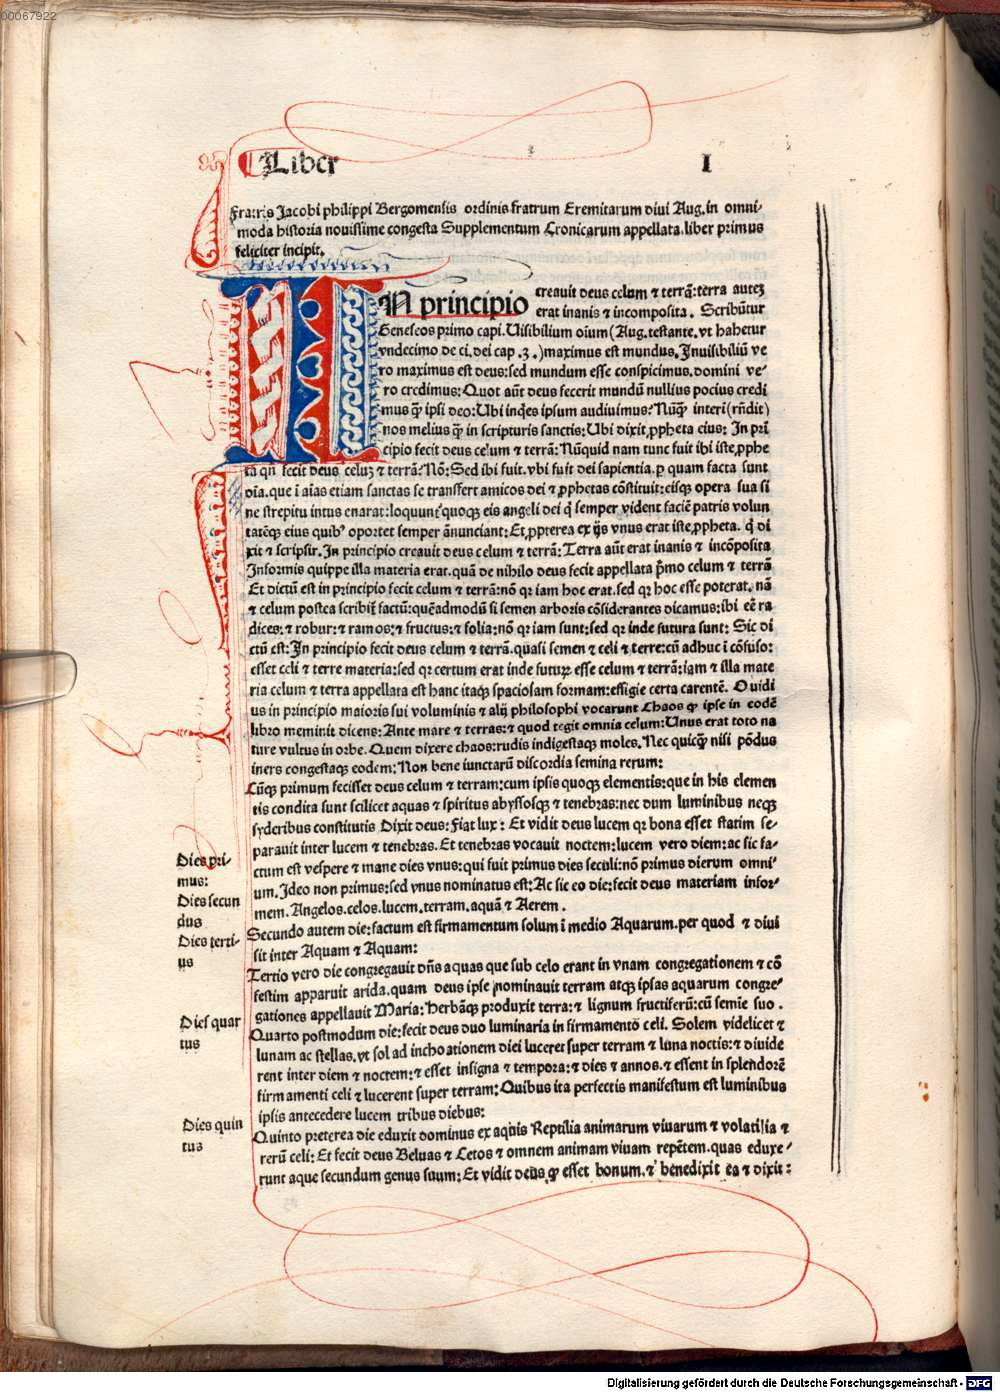 00067922
Liber I
Fratris Jacobi philippi Bergomensis ordinis fratrum Eremitarum diui Aug. in omni-
moda historia nouissime congesta Supplementum Cronicarum appellata. liber primus
feliciter incipit.
IN principio creauit deus celum ⁊ terrã: terra autez
erat inanis ⁊ incomposita. Scribũtur
Geneseos primo capi. Uisibilium oĩum (Aug. testante. vt habetur
vndecimo de ci. dei cap. 3.) maximus est mundus. Inuisibiliũ ve
ro maximus est deus: sed mundum esse conspicimus. domini ve-
ro credimus: Quot aũt deus fecerit mundũ nullius pocius credi
mus q̃ ipsi deo: Ubi inq̃es ipsum audiuimus: Nũq̃ interi (rñdit)
nos melius q̃ in scripturis sanctis: Ubi dixit ꝓpheta eius: In pri
cipio fecit deus celum ⁊ terrã: Nũquid nam tunc fuit ibi iste ꝓphe
ta qñ fecit deus celuz ⁊ terrã: Nõ: Sed ibi fuit. vbi fuit dei sapientia. ꝑ quam facta sunt
oĩa. que ĩ aĩas etiam sanctas se transfert amicos dei ⁊ ꝓphetas cõstituit: eisqꝫ opera sua si
ne strepitu intus enarat: loquunt᷑ quoqꝫ eis angeli dei q̃ semper vident faciẽ patris volun
tatẽqꝫ eius quibꝰ oportet semper ãnunciant: Et ꝓpterea ex ijs vnus erat iste ꝓpheta. q̇ di
xit ⁊ scripsit. In principio creauit deus celum ⁊ terrã: Terra aũt erat inanis ⁊ incõposita
Informis quippe illa materia erat. quã de nihilo deus fecit appellata p̃mo celum ⁊ terrã
Et dictũ est in principio fecit celum ⁊ terrã: nõ qꝛ iam hoc erat. sed qꝛ hoc esse poterat. nã
⁊ celum postea scribit᷑ factũ: quẽadmodũ si semen arboris cõsiderantes dicamus: ibi eẽ ra
dices: ⁊ robur: ⁊ ramos: ⁊ fructus: ⁊ folia: nõ qꝛ iam sunt: sed qꝛ inde futura sunt: Sic di
ctũ est: In principio fecit deus celum ⁊ terrã. quasi semen ⁊ celi ⁊ terre: cũ adhuc ĩ cõfuso:
esset celi ⁊ terre materia: sed qꝛ certum erat inde futurꝝ esse celum ⁊ terrã: iam ⁊ illa mate
ria celum ⁊ terra appellata est hanc itaqꝫ spaciosam formam: effigie certa carentẽ. Ouidi
us in principio maioris sui voluminis ⁊ alij philosophi vocarunt Chaos ꝙ ipse in eodẽ
libro meminit dicens: Ante mare ⁊ terras: ⁊ quod tegit omnia celum: Unus erat toto na
ture vultus in orbe. Quem dixere chaos: rudis indigestaqꝫ moles. Nec quicq̃ nisi põdus
iners congestaqꝫ eodem: Non bene iunctarũ discordia semina rerum:
Cũqꝫ primum fecisset deus celum ⁊ terram: cum ipsis quoqꝫ elementis: que in his elemen
tis condita sunt scilicet aquas ⁊ spiritus abyssosqꝫ ⁊ tenebras: nec dum luminibus neqꝫ
syderibus constitutis Dixit deus: Fiat lux: Et vidit deus lucem qꝛ bona esset statim se-
parauit inter lucem ⁊ tenebras. Et tenebras vocauit noctem: lucem vero diem: ac sic fa-
ctum est vespere ⁊ mane dies vnus: qui fuit primus dies seculi: nõ primus dierum omni-
um. Ideo non primus: sed vnus nominatus est: Ac sic eo die: fecit deus materiam infor-
mem. Angelos. celos. lucem. terram. aquã ⁊ Aerem.
Dies pri-
mus:
Dies secun
dus
Secundo autem die: factum est firmamentum solum ĩ medio Aquarum. per quod ⁊ diui
sit inter Aquam ⁊ Aquam:
Dies terti-
us
Tertio vero die congregauit dñs aquas que sub celo erant in vnam congregationem ⁊ cõ
festim apparuit arida. quam deus ipse nominauit terram atqꝫ ipsas aquarum congre-
gationes appellauit Maria: Herbãqꝫ produxit terra: ⁊ lignum fructiferũ: cũ semĩe suo.
Dies quar
tus
Quarto postmodum die: fecit deus duo luminaria in firmamentõ celi. Solem videlicet ⁊
lunam ac stellas. vt sol ad inchoationem diei luceret super terram ⁊ luna noctis: ⁊ diuide
rent inter diem ⁊ noctem: ⁊ esset insigna ⁊ tempora: ⁊ dies ⁊ annos. ⁊ essent in splendorẽ
firmamenti celi ⁊ lucerent super terram: Quibus ita perfectis manifestum est luminibus
ipsis antecedere lucem tribus diebus:
Dies quin
tus
Quinto preterea die eduxit dominus ex aquis Reptilia animarum viuarum ⁊ volatilia ⁊
rerũ celi: Et fecit deus Beluas ⁊ Cetos ⁊ omnem animam viuam repẽtem. quas eduxe-
runt aque secundum genus suum: Et vidit deũs ꝙ esset bonum. ⁊ benedixit ea ⁊ dixit:
Digitalisierung gefördert durch die Deutsche Forschungsgemeinschaft - DFG